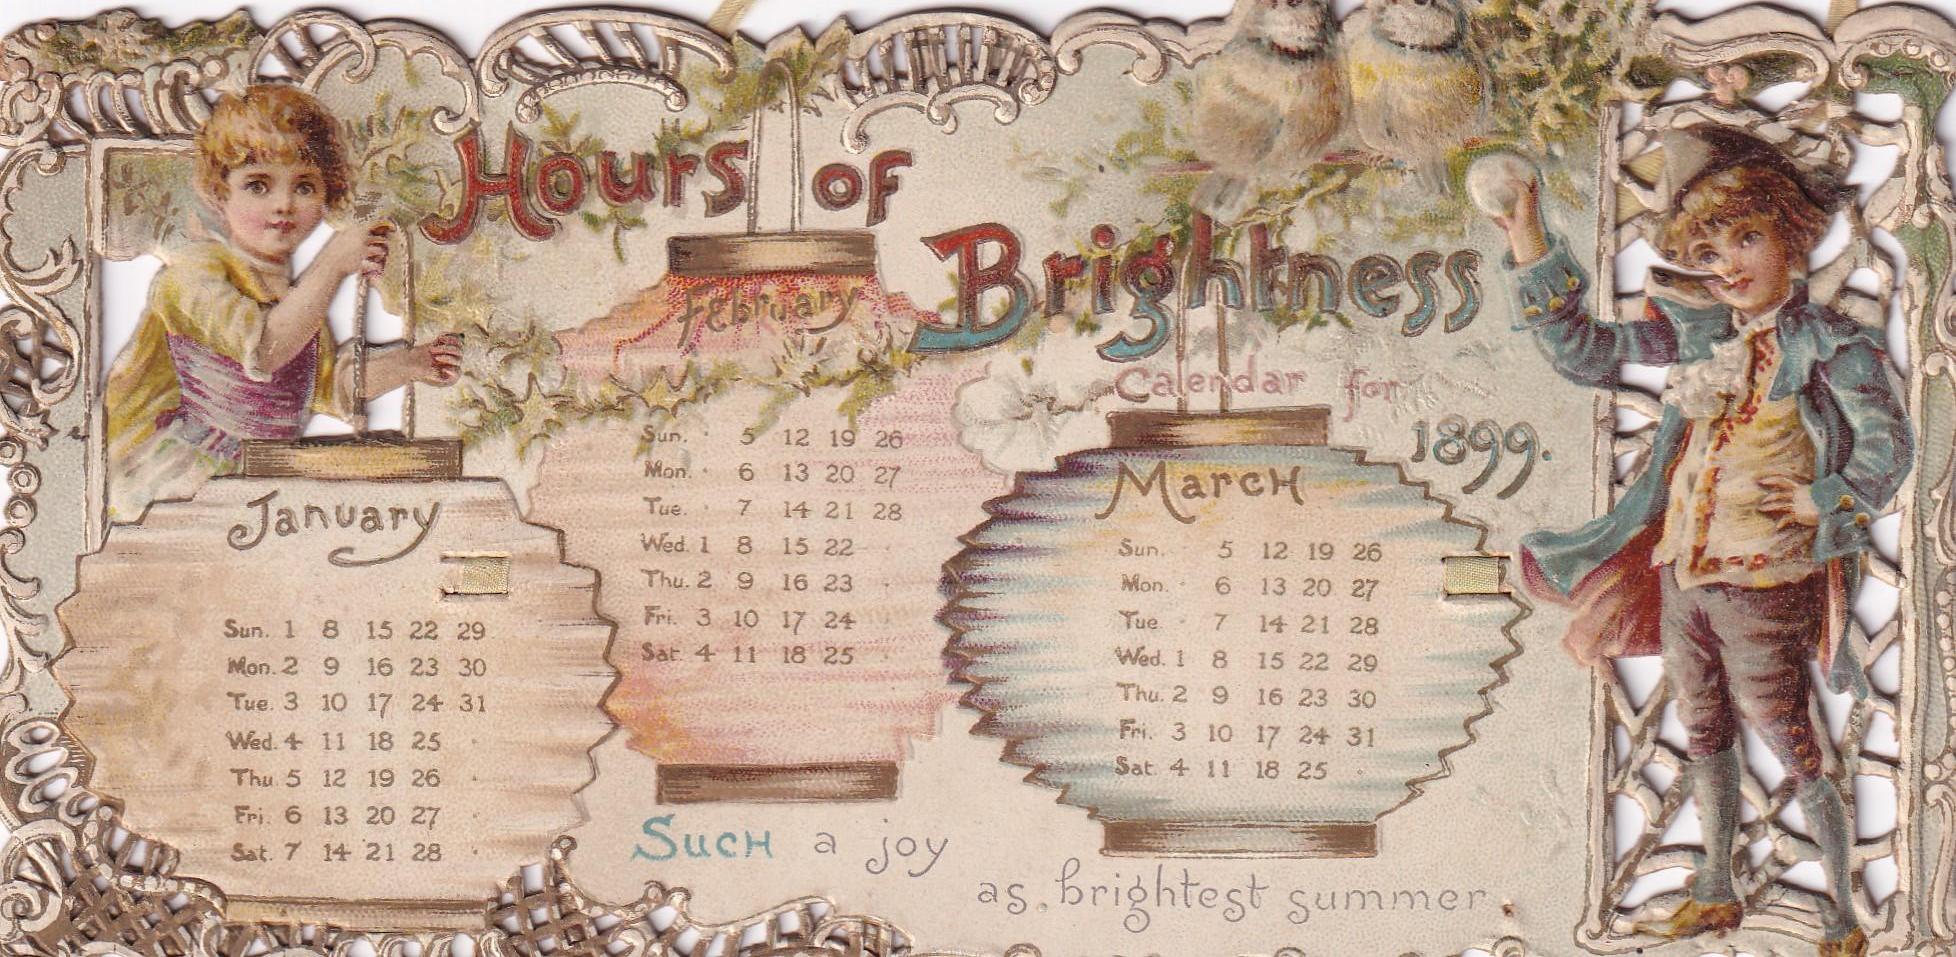 Hours of
Brightness
Calendar for
1899.
January
Sun. 1 8 15 22 29
Mon. 2 9 16 23 30
Tue. 3 10 17 24 31
Wed. 4 11 18 25
Thu. 5 12 19 26
Fri. 6 13 20 27
Sat. 7 14 21 28
February
Sun. 5 12 19 26
Mon. 6 13 20 27
Tue. 7 14 21 28
Wed. 1 8 15 22
Thu. 2 9 16 23
Fri. 3 10 17 24
Sat. 4 11 18 25
March
Sun. 5 12 19 26
Mon. 6 13 20 27
Tue. 7 14 21 28
Wed. 1 8 15 22 29
Thu. 2 9 16 23 30
Fri. 3 10 17 24 31
Sat. 4 11 18 25
Such a joy
as brightest summer